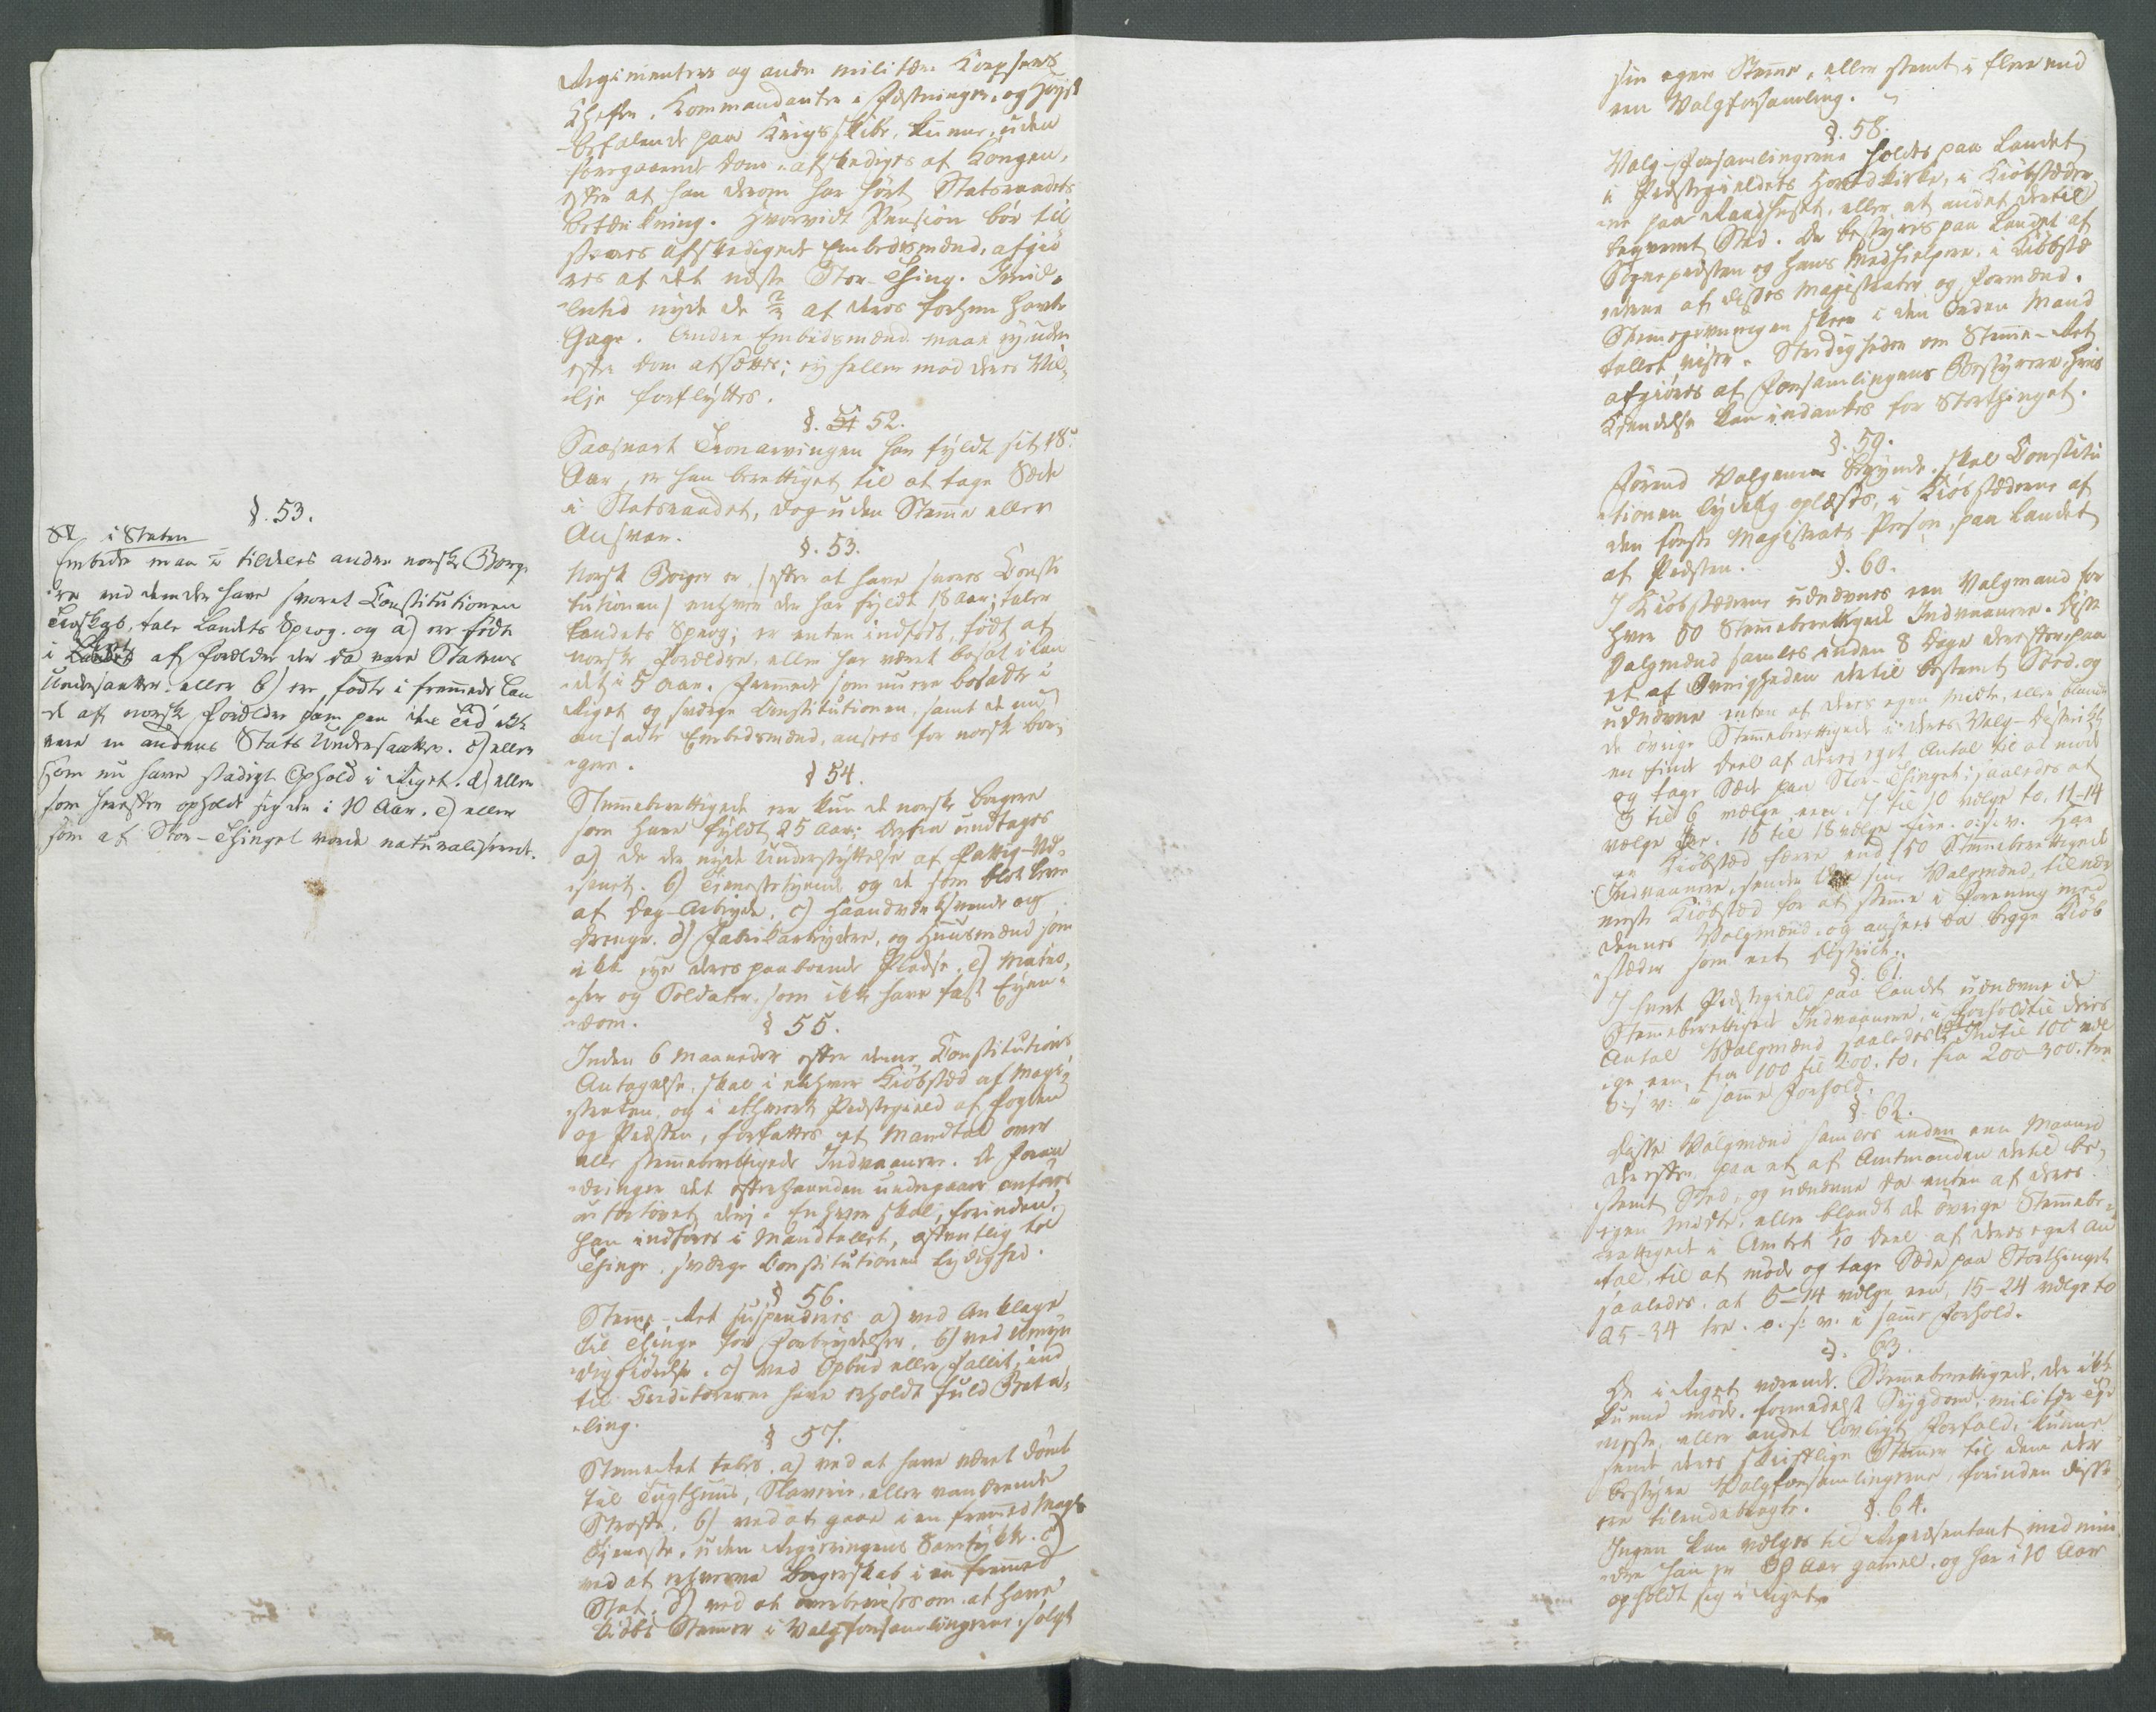 §. 53.
i Staten
Embeder maa tildeles andre norske Borge
re end dem der have svoret Constitutionen
Troskab, tale Landets Sprog. og a) ere födte
i Landet af forældre der da vare Statens
Undersaatter. eller b) ere födte i fremmede Lan
de af norske forældre som paa den Tid ikke
vare en andens Stats Undersaatter. c) eller
som nu have stadigt Ophold i Riget. d) eller
som herefter opholde sig der i 10 Aar. e) eller
som af Stor-Thinget vorde naturaliserede.
Regimenters og andre militære Corpsers
Cheffer. Kommandanter i Fæstninger, og Høyst
befalende paa Krigsskibe, kunne, uden
foregaaende Dom, afskediges af Kongen,
efter at han derom har hört Statsraadets
betænkning. Hvorvidt Pension bör til
staaes afskedigede Embedsmænd, afgiö
res af det næste Stor-Thing. Imid-
lertid nyde de 2/3 af deres forhen havte
Gage. Andre Embedsmænd maae ey uden
efter Dom afsættes; ey heller mod deres Vil
lje forflyttes.
§. 51 52.
Saasnart Tronarvingen har fyldt sit 18de
Aar, er han berettiget til at tage Sæde
i Statsraadet, dog uden Stemme eller
Ansvar.
§. 53.
Norsk Borger er, (efter at have svoret Consti
tutionen) enhver der har fyldt 18 Aar; taler
Landets Sprog; er enten indfödt, födt af
norske forældre, eller har været bosat i Lan
det i 5 Aar. fremmede som nu ere bosadte i
Riget og sværge Constitutionen, samt de nu
ansadte Embedsmænd, ansees for norske bor-
gere.
§ 54.
Stemmeberettigede ere kun de norske borgere
som have fyldt 25 Aar; derfra undtages
a) De der nyde Understyttelse af Fattig-Væ-
senet. b) Tienestetyende og de som blot leve
af Dag-Arbeyde. c) Haandværksvende og
Drenge. d) Fabrikarbeydere, og Huusmænd som
ikke eye deres paaboende Pladse. e) Matro-
ser og Soldater, som ikke have fast Eyen-
dom.
§ 55.
Inden 6 Maaneder efter denne Constitutions
Antagelse, skal i enhver Kiöbstæd af Magi-
straten, og i ethvert Præstegield af fogden
og Præsten, forfattes et Mandtal over
alle stemmeberettigede Indvaanere. De foran
dringer det efterhaanden undergaaer anföres
Enhver skal, forinden
han indföres i Mandtallet, offentlig til
Thinge sværge Constitutionen Lydighed.
§ 56.
Stemme-Ret suspenderes a) ved Anklage
til Thinge for forbrydelser. b) ved Umyn
diggiörelse. c) ved Opbud eller fallit, ind
til Creditorerne have erholdt fuld Beta-
ling.
§ 57.
Stemmeret tabes, a) ved at have været dömt
til Tugthuus, Slaverie, eller vanærende
Straffe. b) ved at gaae i en fremmed Magts
Tjeneste, uden Regieringens Samtykke. c)
ved at erhverve Borgerskab i en fremmed
Stat. d) ved at overbevises om at have
kiöbt Stemmer i Valgforsamlingerne, solgt
sin egen Stemme, eller stemt i flere end
een Valgforsamling.
§. 58.
Valg-Forsamlingerne holdes paa Landet
i Præstegieldets Hovedkirke, i Kiöbstæder
ne paa Raadhuset, eller et andet dertil
beqvemt Sted. De bestyres paa Landet af
Sognepræsten og hans Medhielpere, i Kiöbstæ
derne af dissses Magistrater og formænd.
Stemmegivningen skeer i den Orden Mand
tallet viser. Stridigheder om Stemme-Ret
afgiöres af forsamlingens Bestyrere, hvis
Kiendelse kan indankes for Storthinget.
§. 59.
Förend Valgene begynde, skal Constitu
tionen lydelig oplæses, i Kiöbstæderne af
den förste Magistrats-Person, paa Landet
af Præsten.
§. 60.
I Kiöbstæderne udnævnes een Valgmand for
hver 50 Stemmeberettigede Indvaanere. Disse
Valgmænd samles inden 8 Dage derefter, paa
et af Övrigheden dertil bestemt Sted, og
udnævne enten af deres egen Midte, eller blandt
de övrige Stemmeberettigede i deres Valg-Distrikt
en fierde Deel af deres eget Antal til at möde
og tage Sæde paa Stor-Thinget; saaledes at
3 til 6 vælge een. 7 til 10 vælge to, 11-14
vælge tre. 15 til 18 vælge fire. o. s. v. Har
en Kiöbstæd færre end 150 Stemmeberettigede
Indvaanere, sender den sine Valgmænd, til nær
meste Kiöbstæd for at stemme i Forening med
dennes Valgmænd, og ansees da begge Kiöb
stæder som eet District.
§. 61.
I hvert Præstegield paa Landet udnævne de
Stemmeberettigede Indvaanere, i forhold til deres
Antal Valgmænd saaledes at Indtil 100 væl
ge een, fra 100 til 200 to, fra 200-300 tre
o: s: v: i samme forhold.
§. 62.
Disse Valgmænd samles inden een Maaned
derefter, paa et af Amtmanden dertil be-
stemt Sted, og udnævne da enten af deres
egen Midte, eller blandt de övrige Stemmebe-
rettigede i Amtet 1/10 Deel af deres eget An
tal, til at möde og tage Sæde paa Storthinget
saaledes, at 5-14 vælge een, 15-24 vælge to
25-34 tre. o. s: v: i samme forhold.
§. 63.
De i Riget værende Stemmeberettigede, der ikke
kunne möde formedelst Sygdom, militær Tie
neste, eller andet lovligt forfald, kunne
sende deres skriftlige Stemmer til dem der
bestyre Valgforsamlingerne, forinden disse
ere tilendebragte.
§. 64.
Ingen kan vælges til Repræsentant, med min
dre han er 30 Aar gammel, og har i 10 Aar
opholdt sig i Riget.